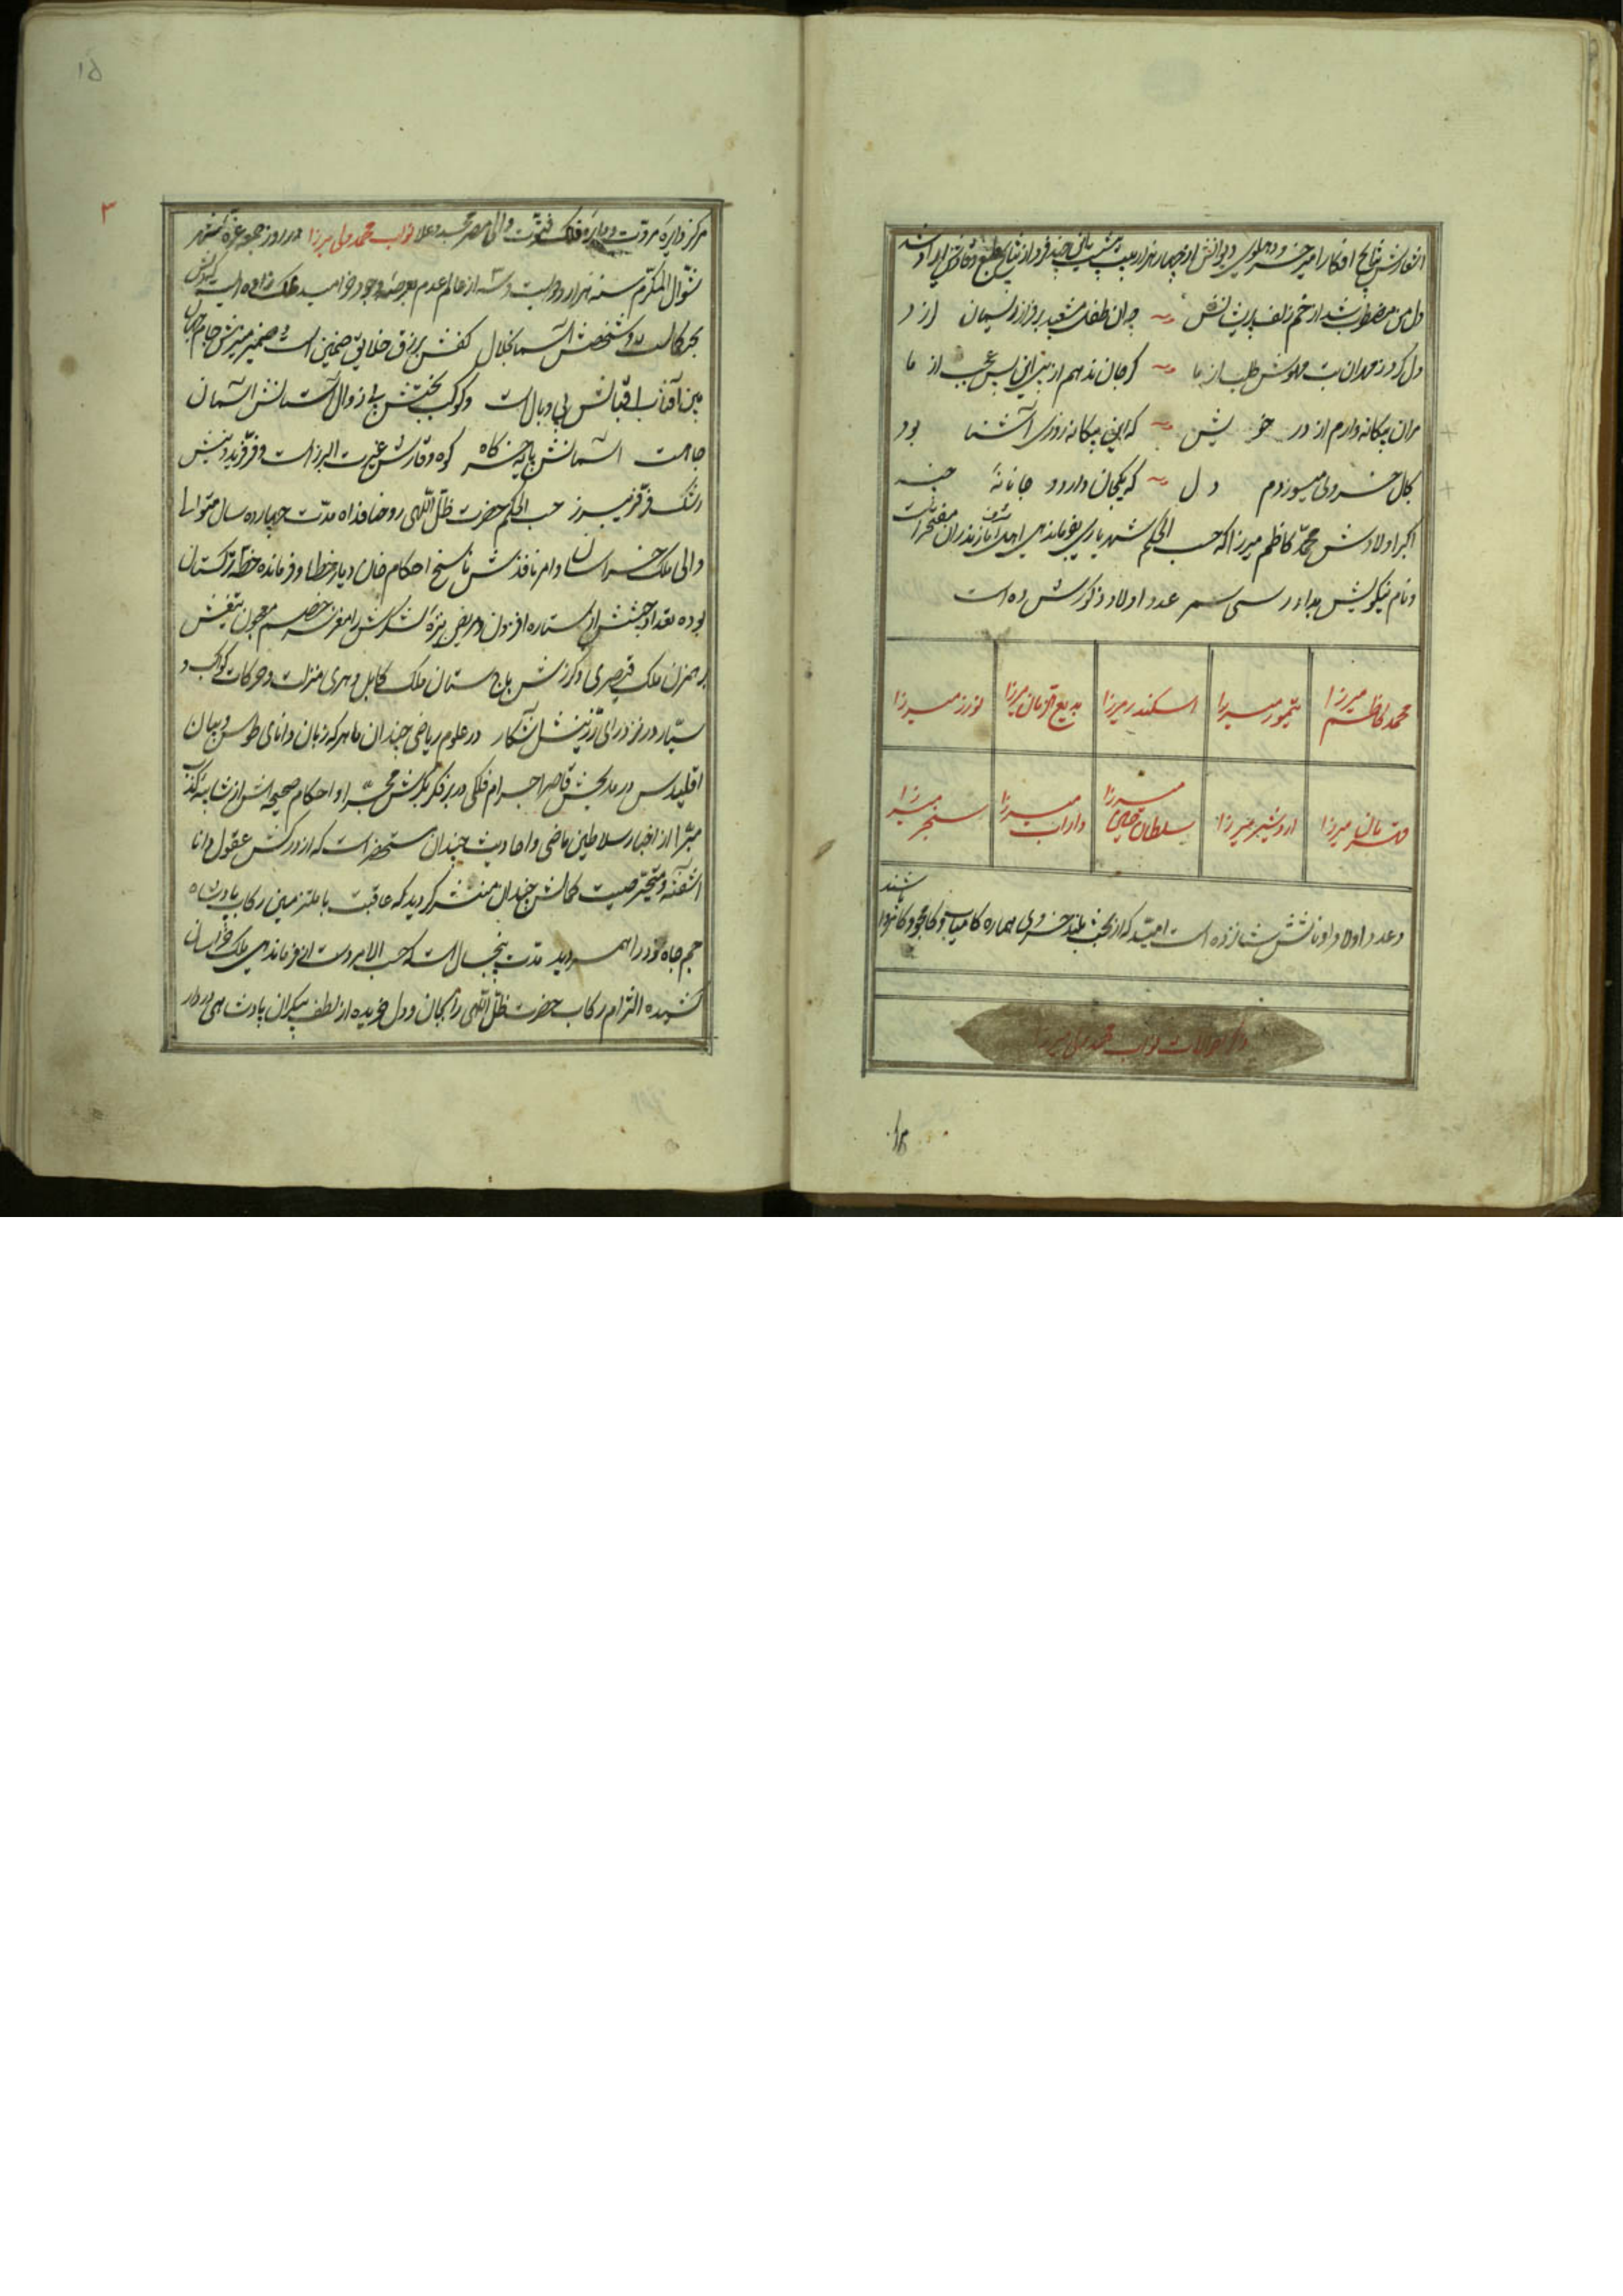 اشعارش نتایج افکار امیر خسرو دهلوی دیوانش از چهار هزار بیت بیش این چند فرد از نتایج طبع وقادش ایراد شد
دل من مضطرب شد از خم زلف پریشانش چه ان طفل مشعبد بر فراز ریسمان لرزد
دل کرد ز همدان بت مهوش طلب از ما کر جان ندهم از پی این بس عجب از ما
مران بیکانه وارم از در خویش که این بیکانه روزی آشنا بود
کال خسروی میسوزدم دل که یکجان دارد و جانانه چند
اکبر اولادش محمد کاظم میرزا که حسب الحکم شهریاری بفرماندهی اشرف مازندران مفتخر است
و نام نیکویش عدد اولاد ذکورش ده است
محمد کاظم میرزا
تیمور میرزا
اسکندر میرزا
بدیع الزمان میرزا
نوذر میرزا
قهرمان میرزا
اردشیر میرزا
سلطان حسین میرزا
داراب میرزا
سنجر میرزا
و عدد اولاد اناثش شانزده است امید که از بخت بلند خسروی هماره کامیاب و کامجو و کامروا باشند
ذکر حالات نواب محمد ولی میرزا
۱۵
۳
مرکز دایره مروت و مدار فلک فتوت والی مصر مجد و علا نواب محمد ولی میرزا در روز جمعه غره شهر
شوال المکرم سنه هزار و دویست و سه از عالم عدم بعرصه وجود خرامید ملک زاده ایست
بحر کمالست و شخصش آسمان جلال کفش برزق خلایق ضامن است و ضمیر منیرش جام جهان
بین آفتاب اقبالش بی وبال است و کوکب بختش بی زوال آستانش آسمان
جاه است آسمانش پایه خرکاه کوه وقارش غیرت البرز است و فر فریدونیش
رشک فر فریبرز حسب الحکم حضرت ظل اللهی روحنا فداه مدت چهارده سال متوالیا
والی ملک خراسان و امر نافذش ناسخ احکام خان دیار خطا و فرمانده خطه ترکستان
بوده تعداد جیشش از ستاره افزون و مریض نیزه لشکرش را مغز سر خصم معجون تیغش
بر همزن ملک قیصری و کرزش باج ستان ملک کابل و هری منزلت و حرکات کواکب
سیار در نزد رای رزینش آشکار در علوم ریاضی چندان ماهر که زبان دانای طوس و بیان
اقلیدس در مدیحش قاصر اجرام فلکی در بر فکر بکرش مجبر و احکام صحیحه اش از شایبه کذب
مبرا از اخبار سلاطین ماضی و احادیث چندان مستحضر است که از درکش عقول دانا
آشفته و متحیر صیت کمالش چندان منتشر کردید که عاقبت بالتزامین رکاب پادشاه
جم جاه خود را همسر دید مدت پنجسال است که حسب الامر دست از فرماندهی ملک خراسان
کشیده التزام رکاب حضرت ظل اللهی را بجان و دل خریده از لطف بیکران پادشاهی در دار